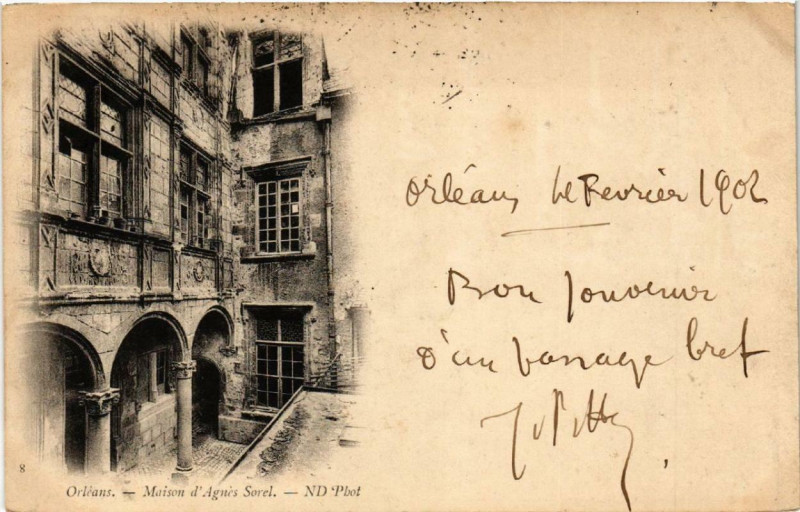 Orléans, Février 1902
Bon souvenir
d'un passage bref
8
Orléans. — Maison d'Agnès Sorel. — ND Phot